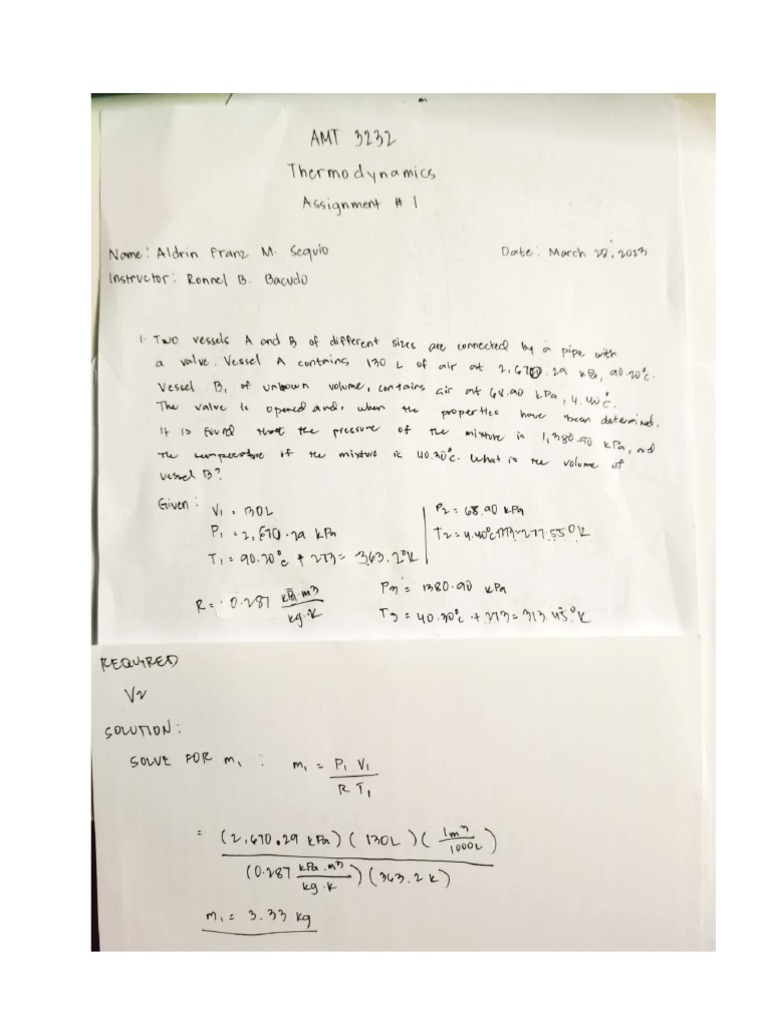 AMT 3232
Thermodynamics
Assignment # 1
Name: Aldrin Franz M. Sequio Date: March 22, 2023
Instructor: Ronnel B. Bacudo
1. Two vessels A and B of different sizes are connected by a pipe with
a valve. Vessel A contains 130 L of air at 2,670.29 kPa, 90.20°c.
Vessel B, of unknown volume, contains air at 68.90 kPa, 4.40°c.
The valve is opened and, when the properties have been determined.
It is found that the pressure of the mixture is 1,380.90 kPa, and
the temperature of the mixture is 40.30°c. What is the volume of
vessel B?
Given: V₁ = 130L P₂ = 68.90 kPa
P₁ = 2,670.29 kPa T₂ = 4.40°c+273=277.55°K
T₁ = 90.20°c + 273 = 363.2°K
R = 0.287 kPa·m³/kg·K P₃ = 1380.90 kPa
T₃ = 40.30°c + 273 = 313.45°K
REQUIRED
V₂
SOLUTION:
SOLVE FOR m₁ : m₁ = P₁ V₁ / R T₁
= (2,670.29 kPa) (130L) (1m³/1000L) / (0.287 kPa·m³/kg·K) (363.2 K)
m₁ = 3.33 kg